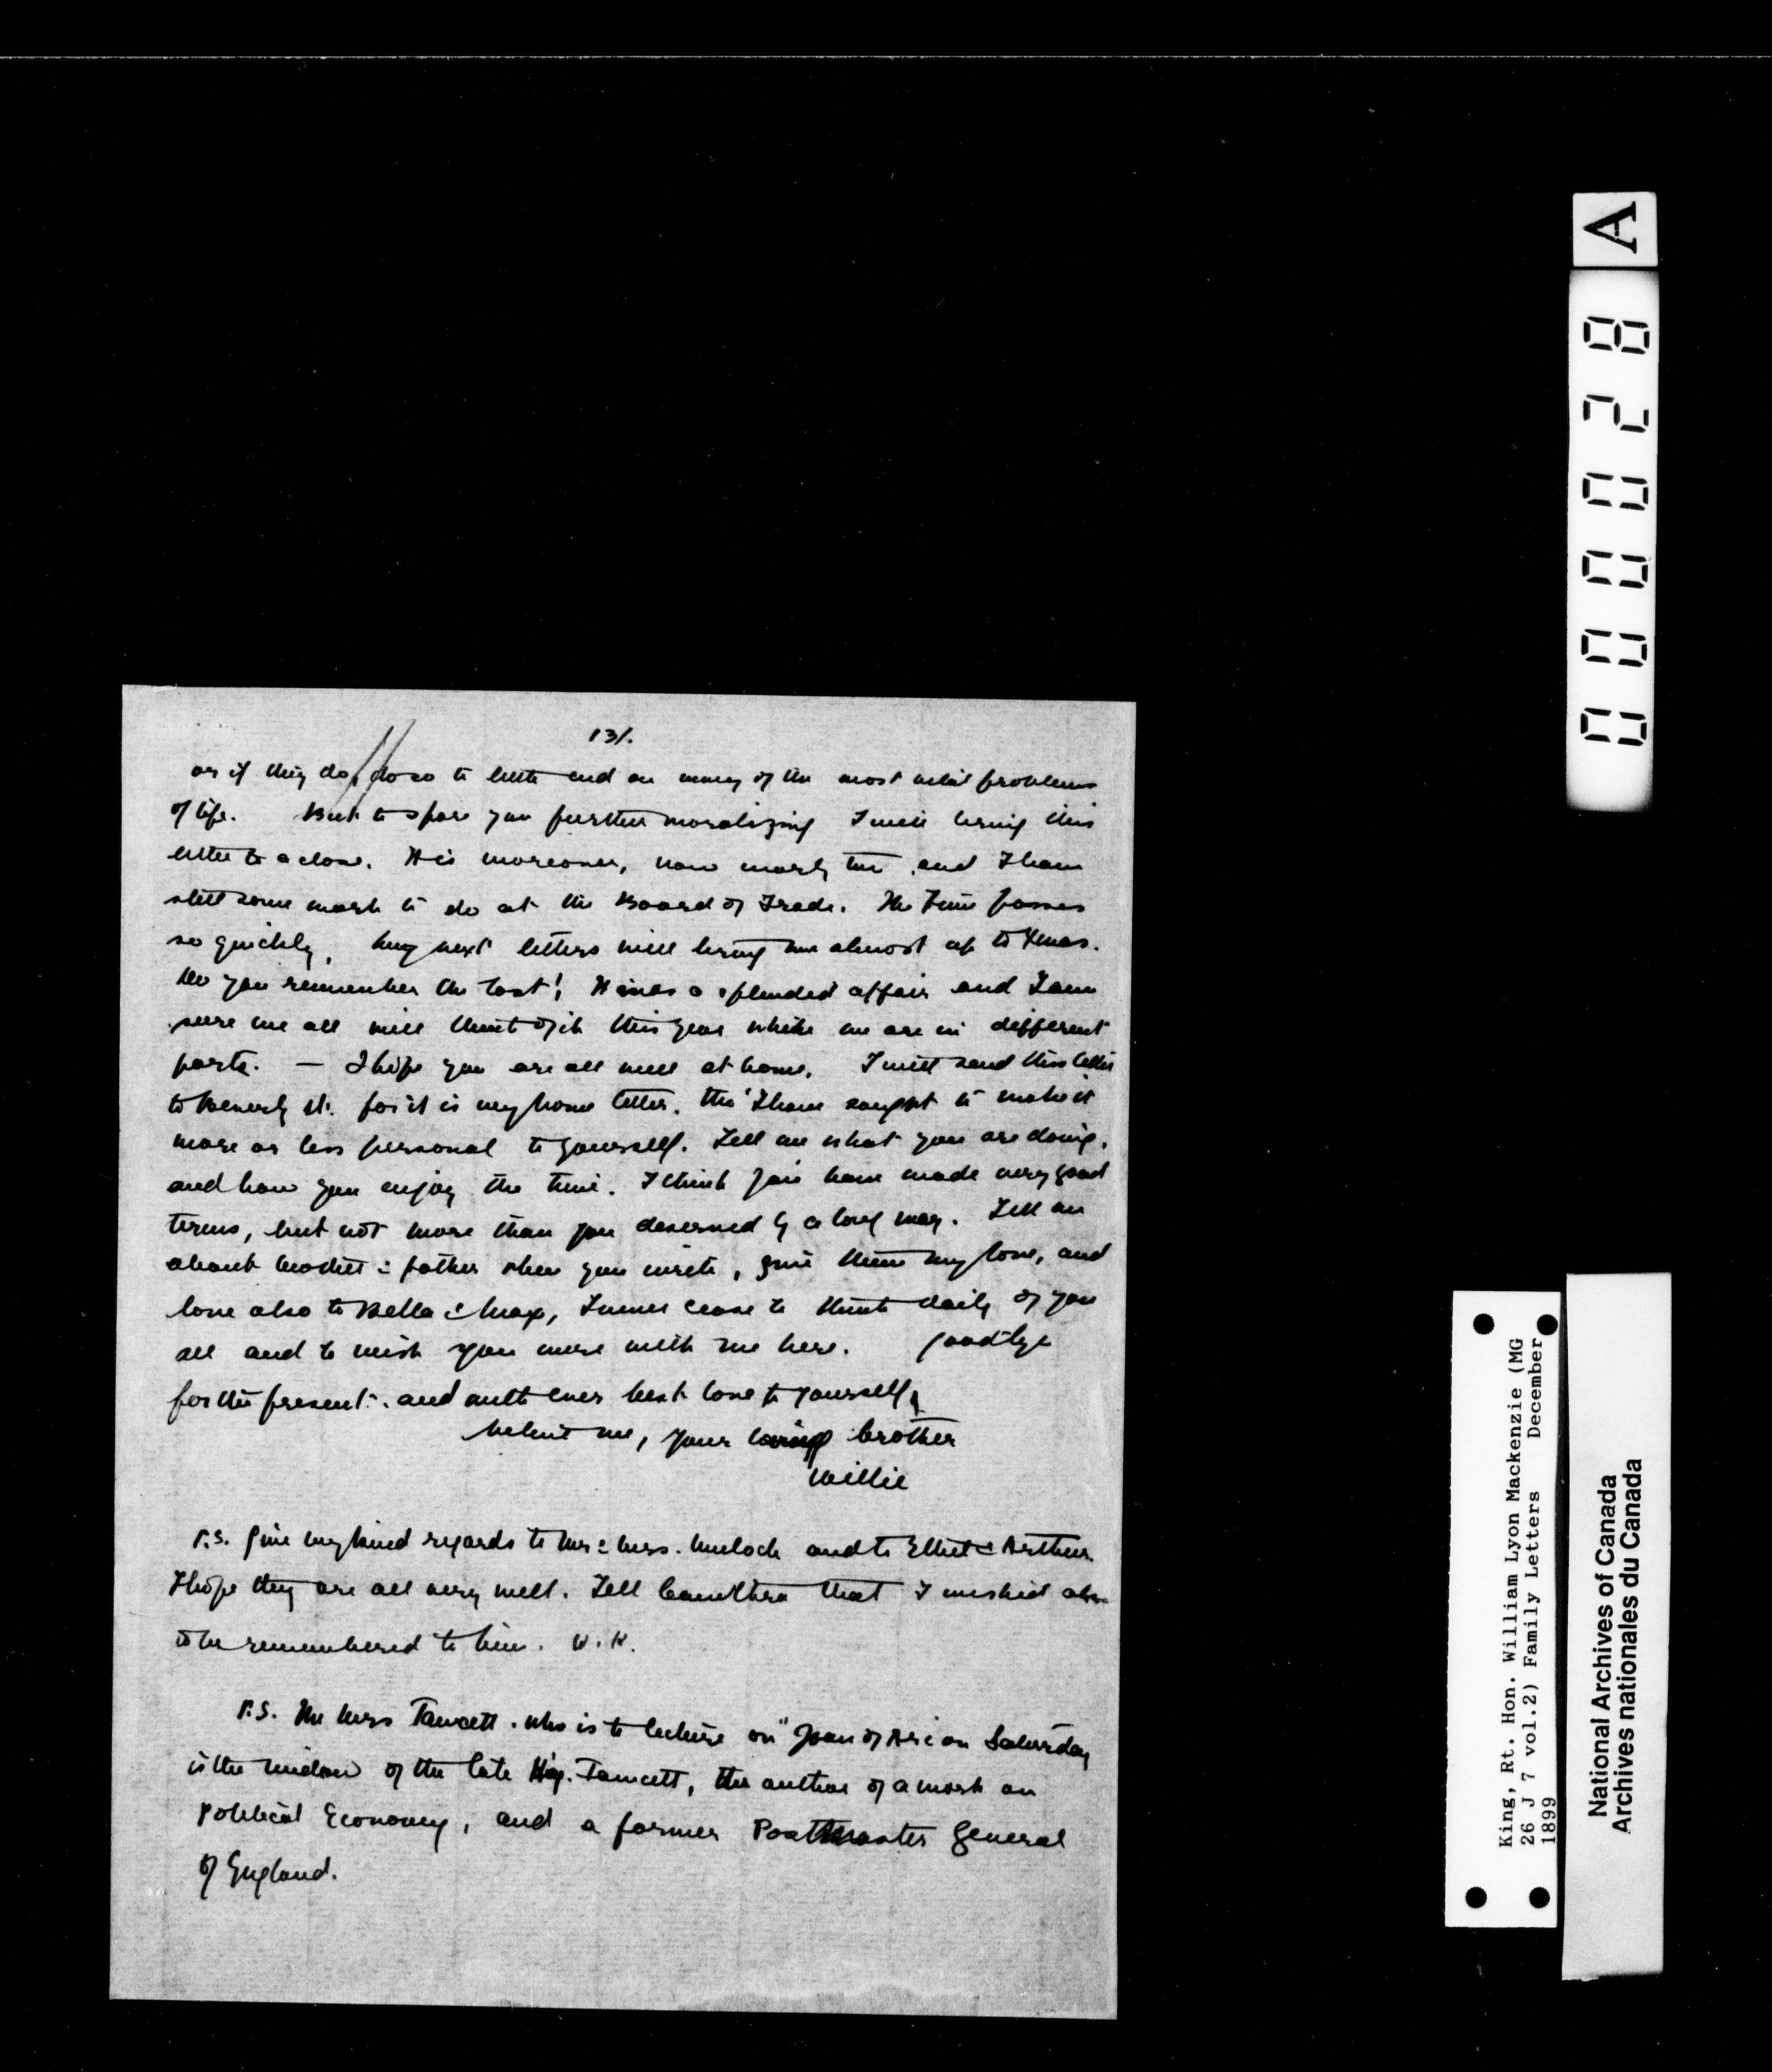 13/.
or if they do, do so to little end on many of the most vital problems
of life. But to spare you further moralizing I will bring this
letter to a close. It is moreover, now nearly two and I have
still some work to do at the Board of Trade. The time passes
so quickly, my next letters will bring me almost up to Xmas.
Do you remember the last! It was a splendid affair and I am
sure we all will think of it this year while we are in different
parts. — I hope you are all well at home. I will send this letter
to Beverly St. for it is my home letter. tho' I have sought to make it
more or less personal to yourself. Tell me what you are doing,
and how you enjoy the time. I think you have made very good
terms, but not more than you deserved by a long way. Tell me
about mother & father when you write, give them my love, and
love also to Bella & Max, I never cease to think daily of you
all and to wish you were with me here. Goodbye
for the present. and with ever best love to yourself,
believe me, your loving brother
Willie
P.S. Give my kind regards to Mr & Mrs. Mulock and to Ethel & Arthur.
I hope they are all very well. Tell that I wished also
to be remembered to him. W.K.
P.S. The Mrs Fawcett. who is to lecture on "Joan of Arc on Saturday
is the widow of the late Hy. Fawcett, the author of a work on
Political Economy, and a former Postmaster General
of England.
A
000028
King, Rt. Hon. William Lyon Mackenzie (MG
26 J 7 vol.2) Family Letters December
1899
National Archives of Canada
Archives nationales du Canada